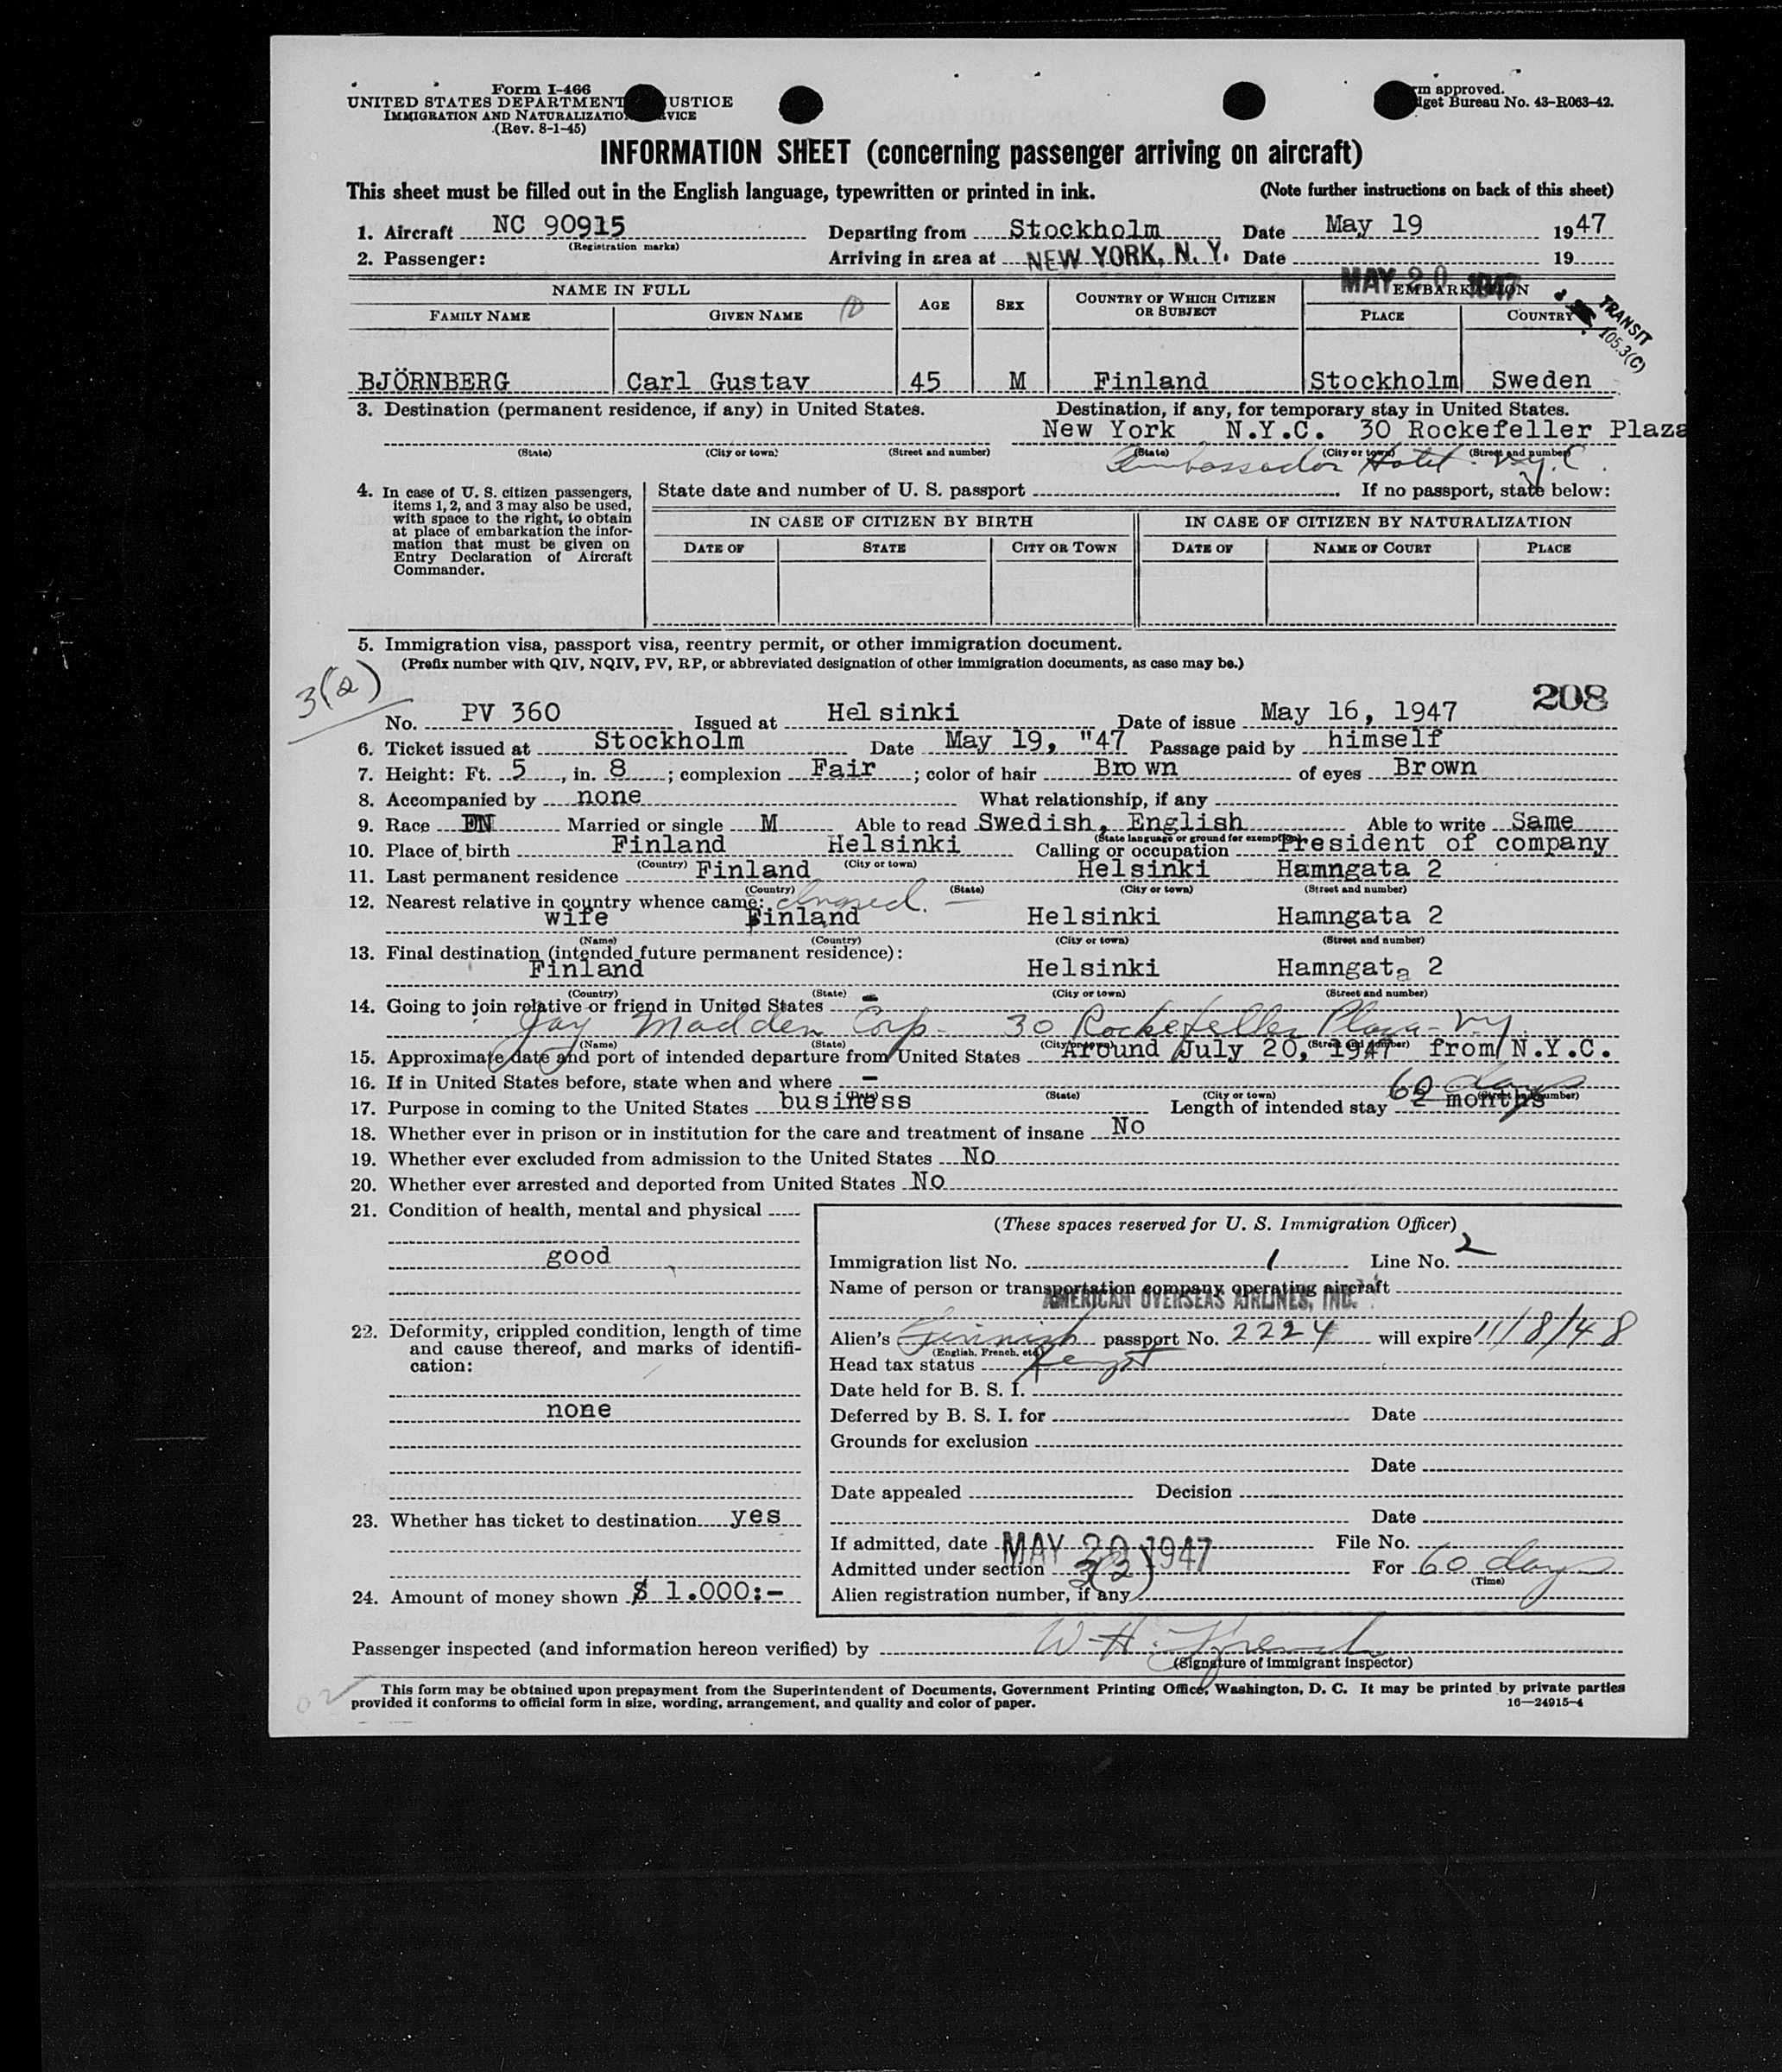 Form I-466
UNITED STATES DEPARTMENT USTICE
IMMIGRATION AND NATURALIZATIO RVICE
(Rev. 8-1-45)
rm approved.
dget Bureau No. 43-R063-42.
INFORMATION SHEET (concerning passenger arriving on aircraft)
This sheet must be filled out in the English language, typewritten or printed in ink. (Note further instructions on back of this sheet)
1. Aircraft NC 90915 Departing from Stockholm Date May 19 1947
(Registration marks)
2. Passenger: Arriving in area at NEW YORK, N. Y. Date 19
MAY 20 1947
NAME IN FULL AGE SEX COUNTRY OF WHICH CITIZEN OR SUBJECT EMBARKATION
FAMILY NAME GIVEN NAME PLACE COUNTRY
TRANSIT
105.3(C)
BJÖRNBERG Carl Gustav 45 M Finland Stockholm Sweden
3. Destination (permanent residence, if any) in United States. Destination, if any, for temporary stay in United States.
New York N.Y.C. 30 Rockefeller Plaza
(State) (City or town) (Street and number) (State) (City or town) (Street and number)
Ambassador Hotel N.Y.C.
4. In case of U. S. citizen passengers, items 1, 2, and 3 may also be used, with space to the right, to obtain at place of embarkation the information that must be given on Entry Declaration of Aircraft Commander.
State date and number of U. S. passport If no passport, state below:
IN CASE OF CITIZEN BY BIRTH IN CASE OF CITIZEN BY NATURALIZATION
DATE OF STATE CITY OR TOWN DATE OF NAME OF COURT PLACE
5. Immigration visa, passport visa, reentry permit, or other immigration document.
(Prefix number with QIV, NQIV, PV, RP, or abbreviated designation of other immigration documents, as case may be.)
3(2)
208
No. PV 360 Issued at Helsinki Date of issue May 16, 1947
6. Ticket issued at Stockholm Date May 19, "47 Passage paid by himself
7. Height: Ft. 5, in. 8; complexion Fair; color of hair Brown of eyes Brown
8. Accompanied by none What relationship, if any
9. Race Married or single M Able to read Swedish, English Able to write Same
(State language or ground for exemption)
10. Place of birth Finland Helsinki Calling or occupation President of company
(Country) (City or town)
11. Last permanent residence Finland Helsinki Hamngata 2
(Country) (State) (City or town) (Street and number)
12. Nearest relative in country whence came:
wife Finland Helsinki Hamngata 2
(Name) (Country) (City or town) (Street and number)
13. Final destination (intended future permanent residence):
Finland Helsinki Hamngata 2
(Country) (State) (City or town) (Street and number)
14. Going to join relative or friend in United States -
Jay Madden Corp - 30 Rockefeller Plaza - N.Y.
(Name) (State) (City or town) (Street and number)
15. Approximate date and port of intended departure from United States Around July 20, 1947 from N.Y.C.
16. If in United States before, state when and where -
(Date) (State) (City or town) (Street and number)
60 days
17. Purpose in coming to the United States business Length of intended stay 2 months
18. Whether ever in prison or in institution for the care and treatment of insane No
19. Whether ever excluded from admission to the United States No
20. Whether ever arrested and deported from United States No
21. Condition of health, mental and physical
good
22. Deformity, crippled condition, length of time and cause thereof, and marks of identification:
none
23. Whether has ticket to destination yes
24. Amount of money shown $ 1.000:-
(These spaces reserved for U. S. Immigration Officer)
Immigration list No. 1 Line No. 2
Name of person or transportation company operating aircraft
AMERICAN OVERSEAS AIRLINES, INC.
Alien's Finnish passport No. 2224 will expire 11/8/48
(English, French, etc.)
Head tax status Exempt
Date held for B. S. I.
Deferred by B. S. I. for Date
Grounds for exclusion
Date
Date appealed Decision
Date
If admitted, date MAY 20 1947 File No.
Admitted under section 3(2) For 60 days
(Time)
Alien registration number, if any
Passenger inspected (and information hereon verified) by W. H. French
(Signature of immigrant inspector)
This form may be obtained upon prepayment from the Superintendent of Documents, Government Printing Office, Washington, D. C. It may be printed by private parties
provided it conforms to official form in size, wording, arrangement, and quality and color of paper. 16—24915-4